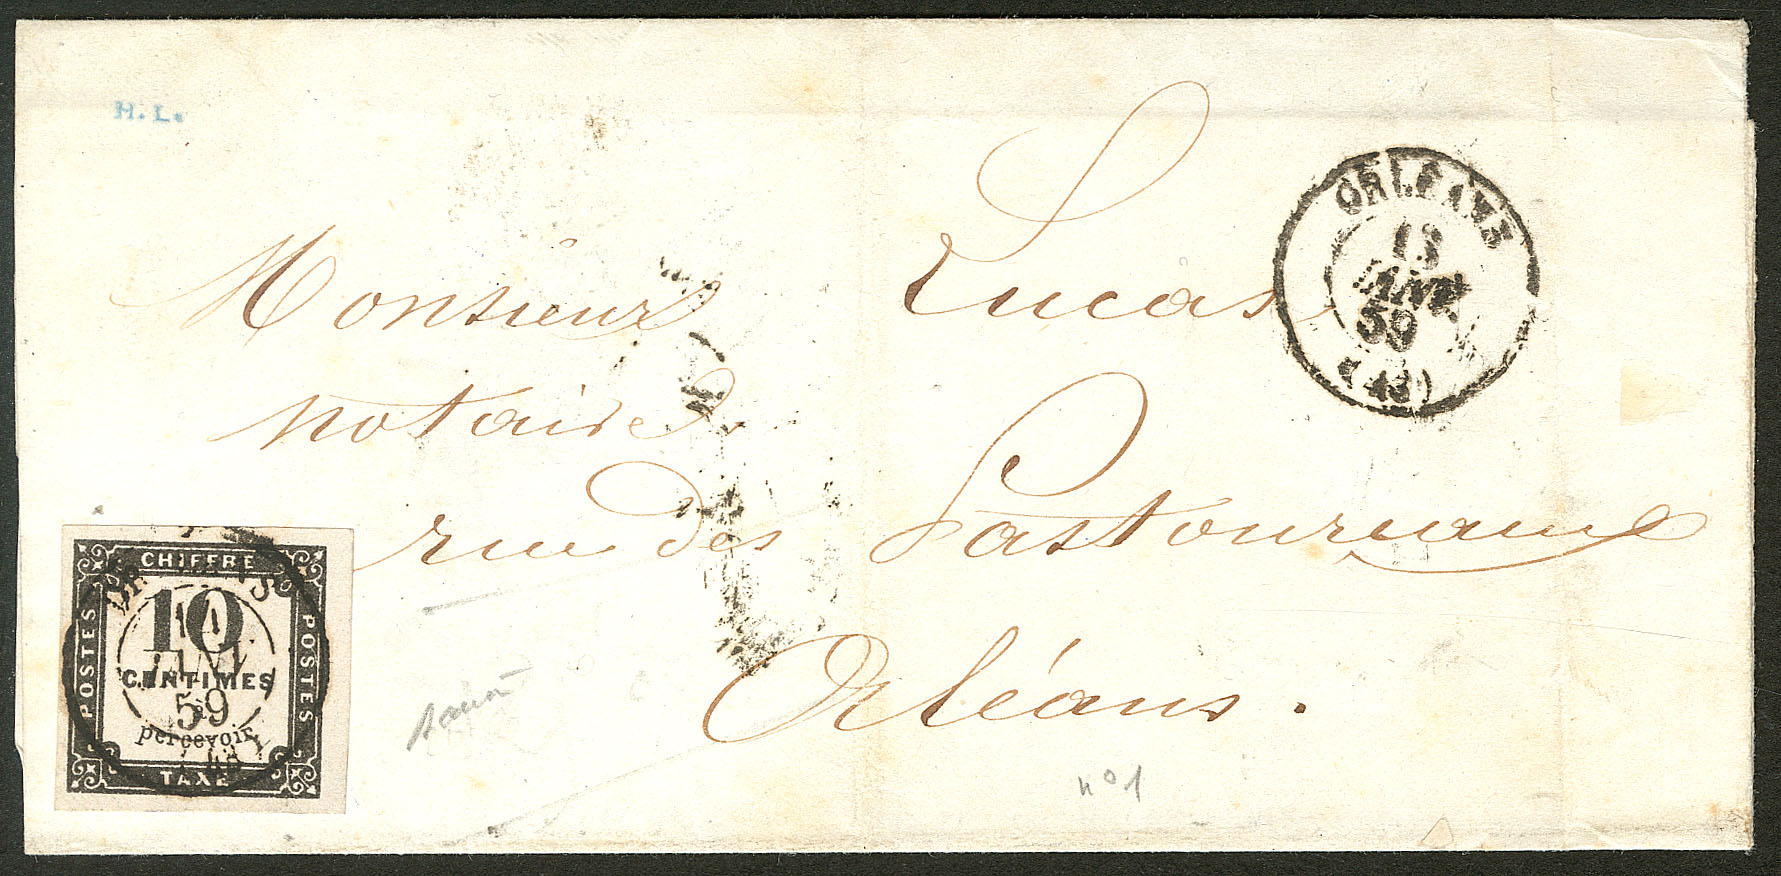 H. L.
Monsieur Lucas
notaire
rue des Pastoureaux
Orléans.
ORLÉANS
13
JANV
59
(43)
CHIFFRE
POSTES
10
CENTIMES
à
percevoir
POSTES
TAXE
59
n° 1